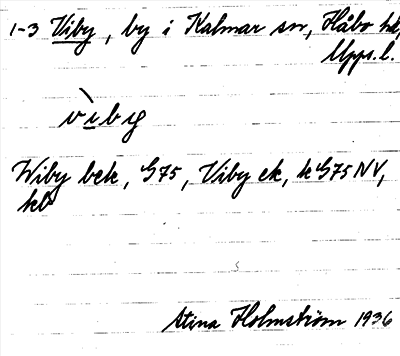 1-3 Viby, by i Kalmar sn, Håbo hd,
Upps.l.
vìby
Wiby bek, G75, Viby ek, k G75 NV,
hb
Stina Holmström 1936